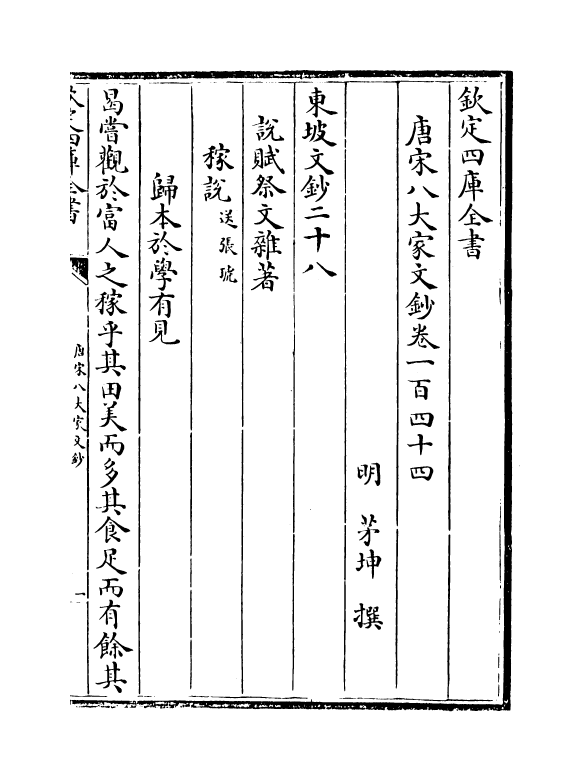 欽定四庫全書
唐宋八大家文鈔卷一百四十四
明 茅坤 撰
東坡文鈔二十八
說賦祭文雜著
稼說 送張琥
歸本於學有見
曷嘗觀於富人之稼乎其田美而多其食足而有餘其
欽定四庫全書
唐宋八大家文鈔
一